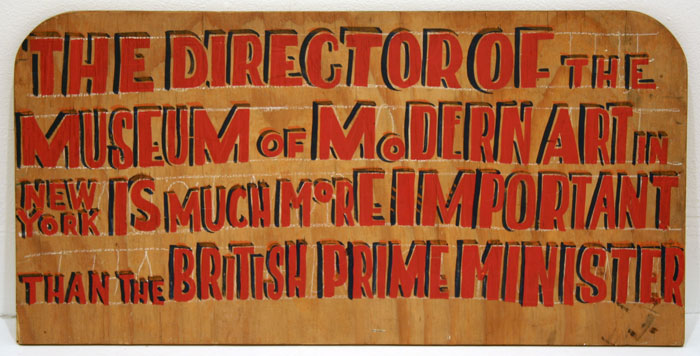 THE DIRECTOR OF THE
MUSEUM OF MODERN ART IN
NEW YORK IS MUCH MORE IMPORTANT
THAN THE BRITISH PRIME MINISTER